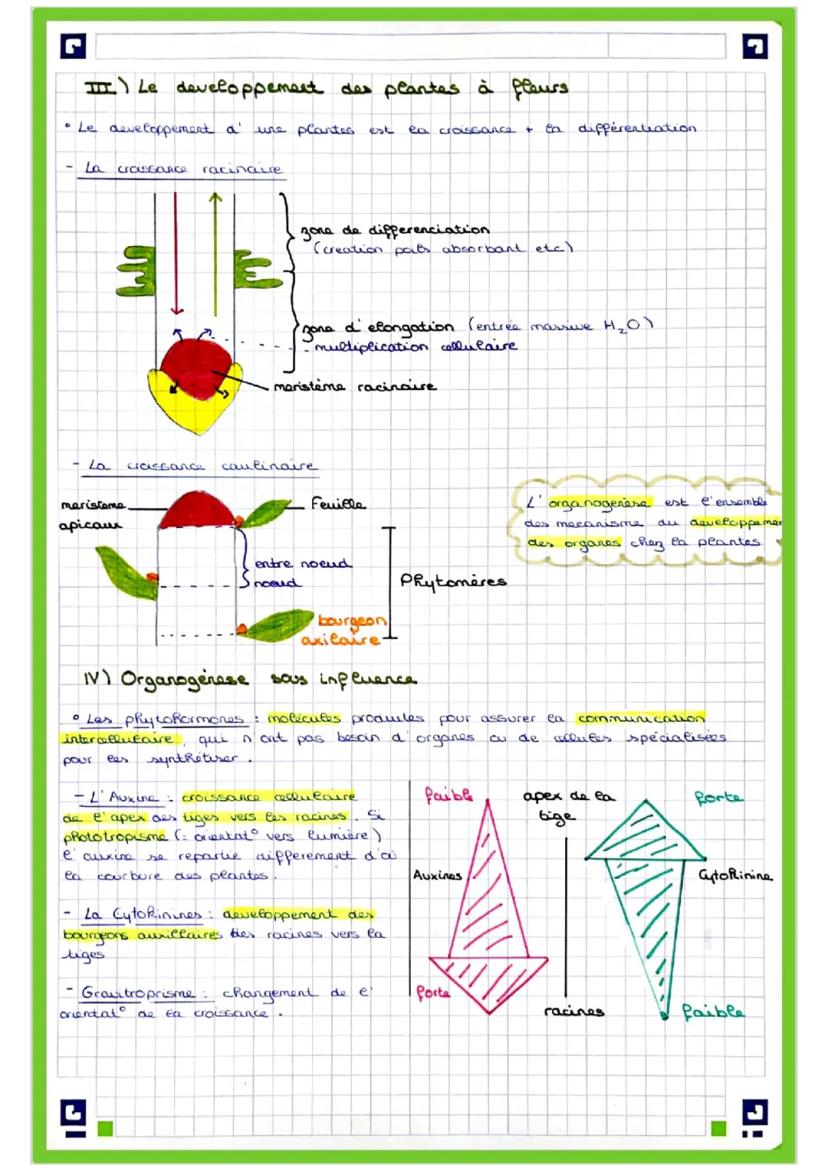 III) Le developpement des plantes à fleurs
° Le developpement d' une plantes est la croissance + la différentiation
- La croissance racinaire
zone de differenciation
(creation poils absorbant etc)
zone d' elongation (entrée massive H₂O)
- multiplication cellulaire
meristème racinaire
- La croissance caulinaire
meristeme
apicaux
Feuille
entre noeud
noeud
Phytomères
bourgeon
axilaire
L' organogenèse est l'ensemble
des mecanisme du developpemen
des organes chez la plantes
IV) Organogénèse sous influence
° Les phytohormones : molécules produites pour assurer la communication
intercellulaire, qui n'ont pas besoin d'organes ou de cellules spécialisées
pour les synthétiser.
- L'Auxine : croissance cellulaire
de l'apex des tiges vers les racines. Si
phototropisme (= orientat° vers lumière)
l'auxine se repartie differement d'où
la courbure des plantes.
- La Cytokinines : developpement des
bourgeons auxillaires des racines vers la
tiges
- Gravitroprisme : changement de l'
orientat° de la croissance.
faible
Auxines
forte
apex de la
tige
racines
forte
Cytokinine
faible